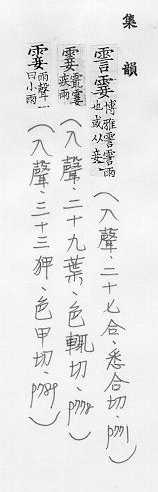 集韻
霅霎 博雅霅霅雨也或从妾 （入聲、二十七合、悉合切、p771）
霎 疾雨 （入聲、二十九葉、色輒切、p778）
霎 雨聲一曰小雨 （入聲、三十三狎、色甲切、p789）